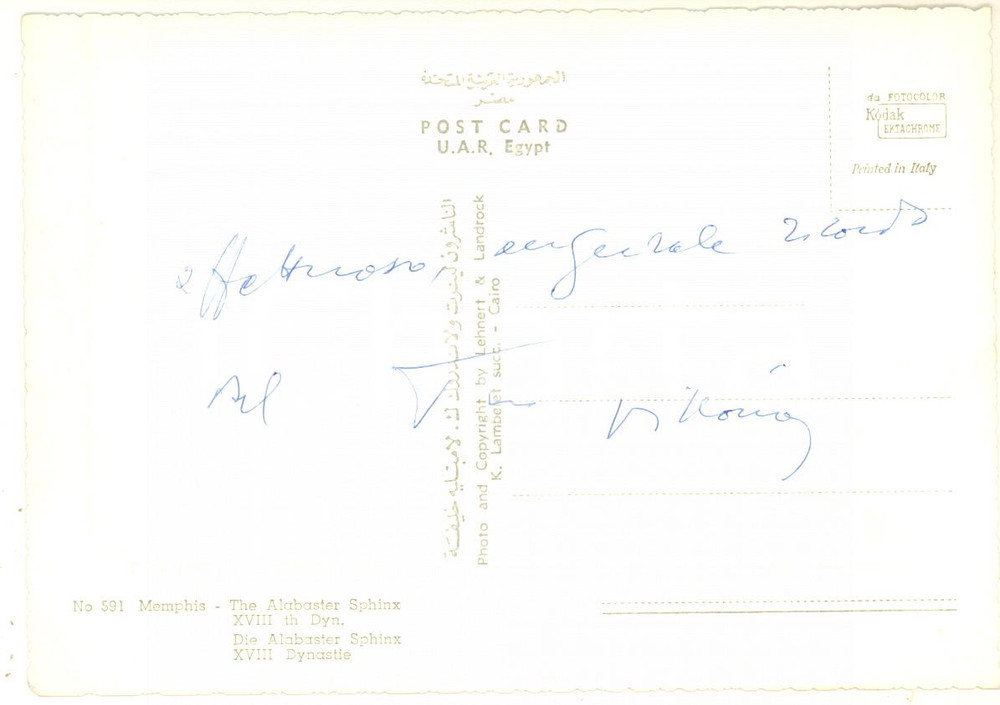 الجمهورية العربية المتحدة
مصر
POST CARD
U.A.R. Egypt
da FOTOCOLOR
Kodak
EKTACHROME
Printed in Italy
affettuoso, augurale ricordo
dal Tuo
الناشرون لينرت ولاندروك ك. لامبليه خليفة
Photo and Copyright by Lehnert & Landrock
K. Lambelet succ. - Cairo
No 591 Memphis - The Alabaster Sphinx
XVIII th Dyn.
Die Alabaster Sphinx
XVIII Dynastie